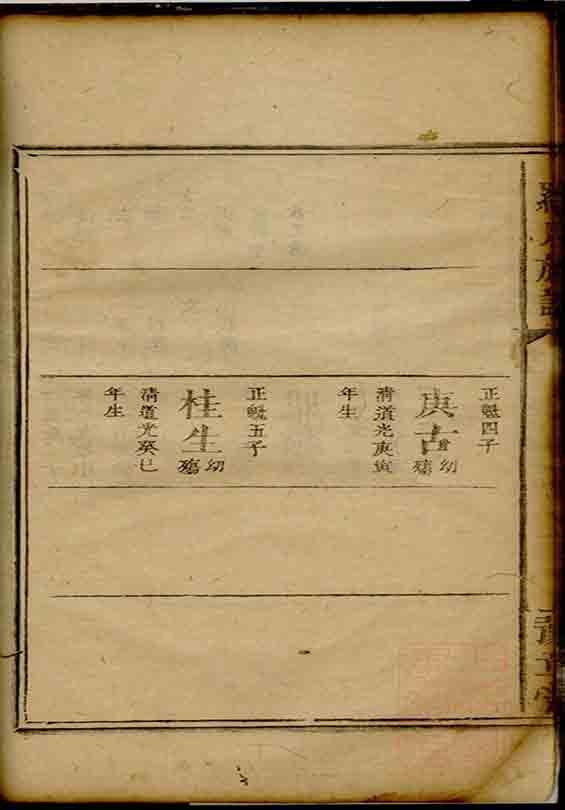 羅氏族譜
正魁四子
庚古 幼殤
清道光庚寅
年生
正魁五子
桂生 幼殤
清道光癸巳
年生